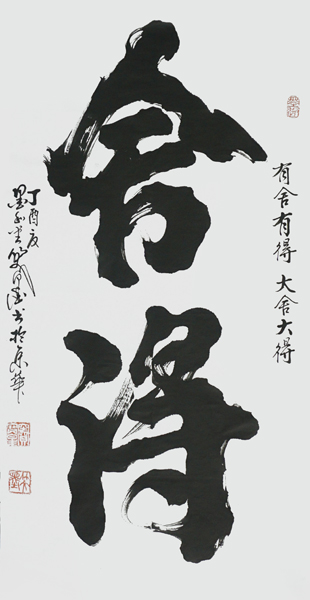 舍得
有舍有得 大舍大得
丁酉夏
书于京华